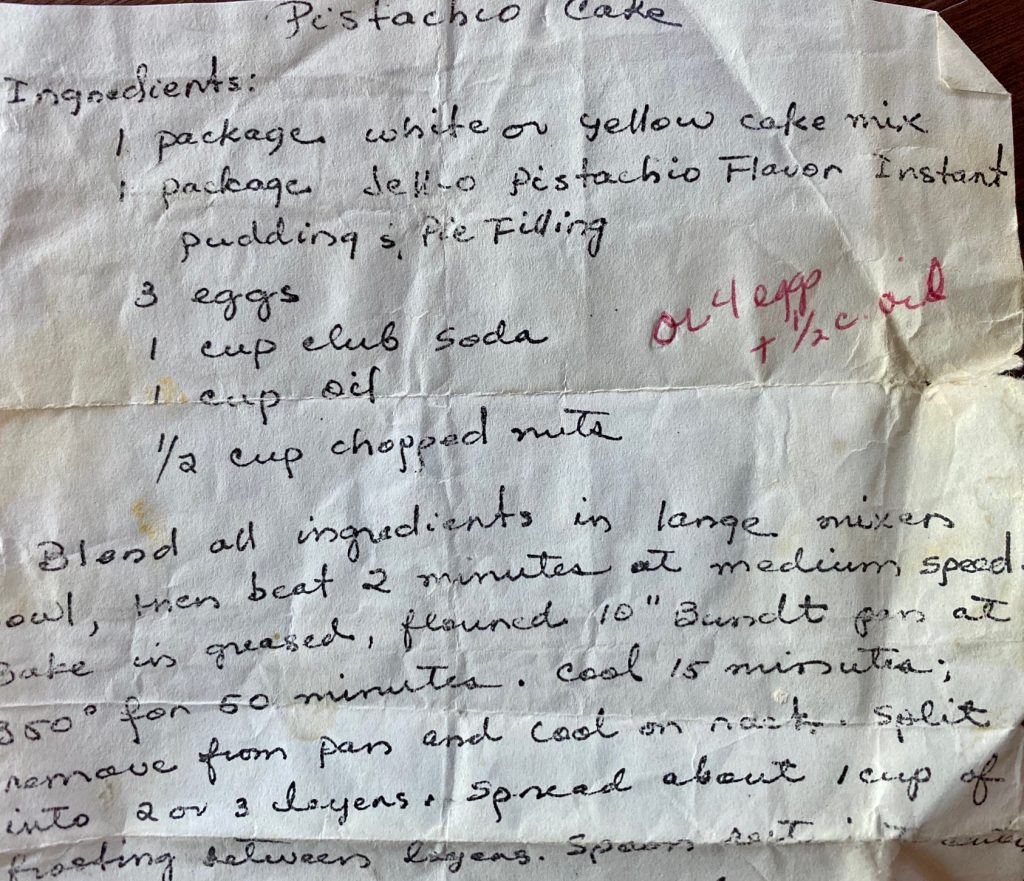 Pistachio Cake
Ingredients:
1 package white or yellow cake mix
1 package Jell-o Pistachio Flavor Instant
pudding & Pie Filling
3 eggs
or 4 eggs
+ 1/2 c. oil
1 cup club soda
1 cup oil
1/2 cup chopped nuts
Blend all ingredients in large mixer
owl, then beat 2 minutes at medium speed.
Bake in greased, floured 10" Bundt pan at
350° for 50 minutes. Cool 15 minutes;
remove from pan and cool on rack. Split
into 2 or 3 layers. Spread about 1 cup of
frosting between layers. Spoon rest